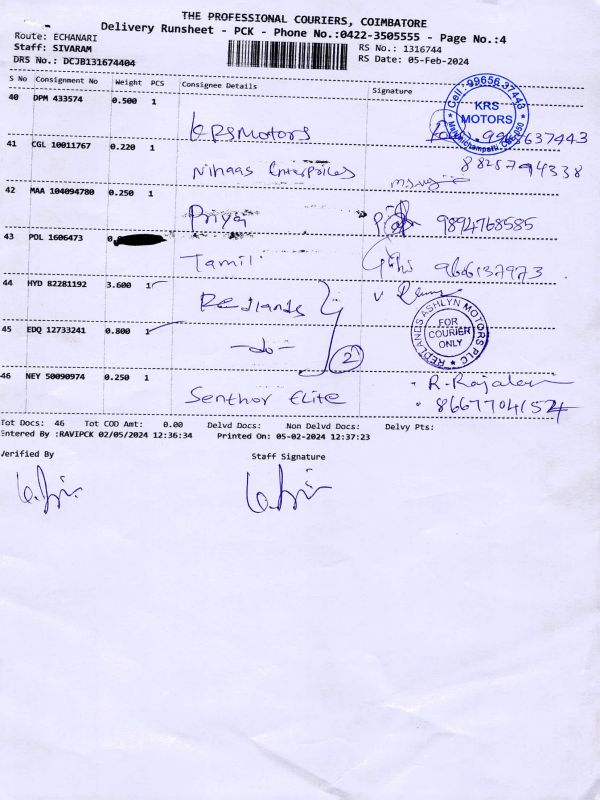 THE PROFESSIONAL COURIERS, COIMBATORE
Delivery Runsheet - PCK - Phone No.:0422-3505555 - Page No.:4
Route: ECHANARI
Staff: SIVARAM
RS No.: 1316744
DRS No.: DCJB131674404
RS Date: 05-Feb-2024
S No Consignment No Weight PCS Consignee Details Signature
Cell: 99656 37443
KRS
MOTORS
40 DPM 433574 0.500 1
KRS Motors 9965637443
41 CGL 10011767 0.220 1
Nihaas Enterprices 8825794338
42 MAA 104094780 0.250 1
Priya 9894768585
43 POL 1606473 0
Tamil 9666137973
44 HYD 82281192 3.600 1
Redlands
REDLANDS ASHLYN MOTORS PLC
FOR
COURIER
ONLY
45 EDQ 12733241 0.800 1
-do- 2
46 NEY 50090974 0.250 1
Senthor Elite R. Rajalexmi
8667704154
Tot Docs: 46 Tot COD Amt: 0.00 Delvd Docs: Non Delvd Docs: Delvy Pts:
Entered By :RAVIPCK 02/05/2024 12:36:34 Printed On: 05-02-2024 12:37:23
Verified By Staff Signature